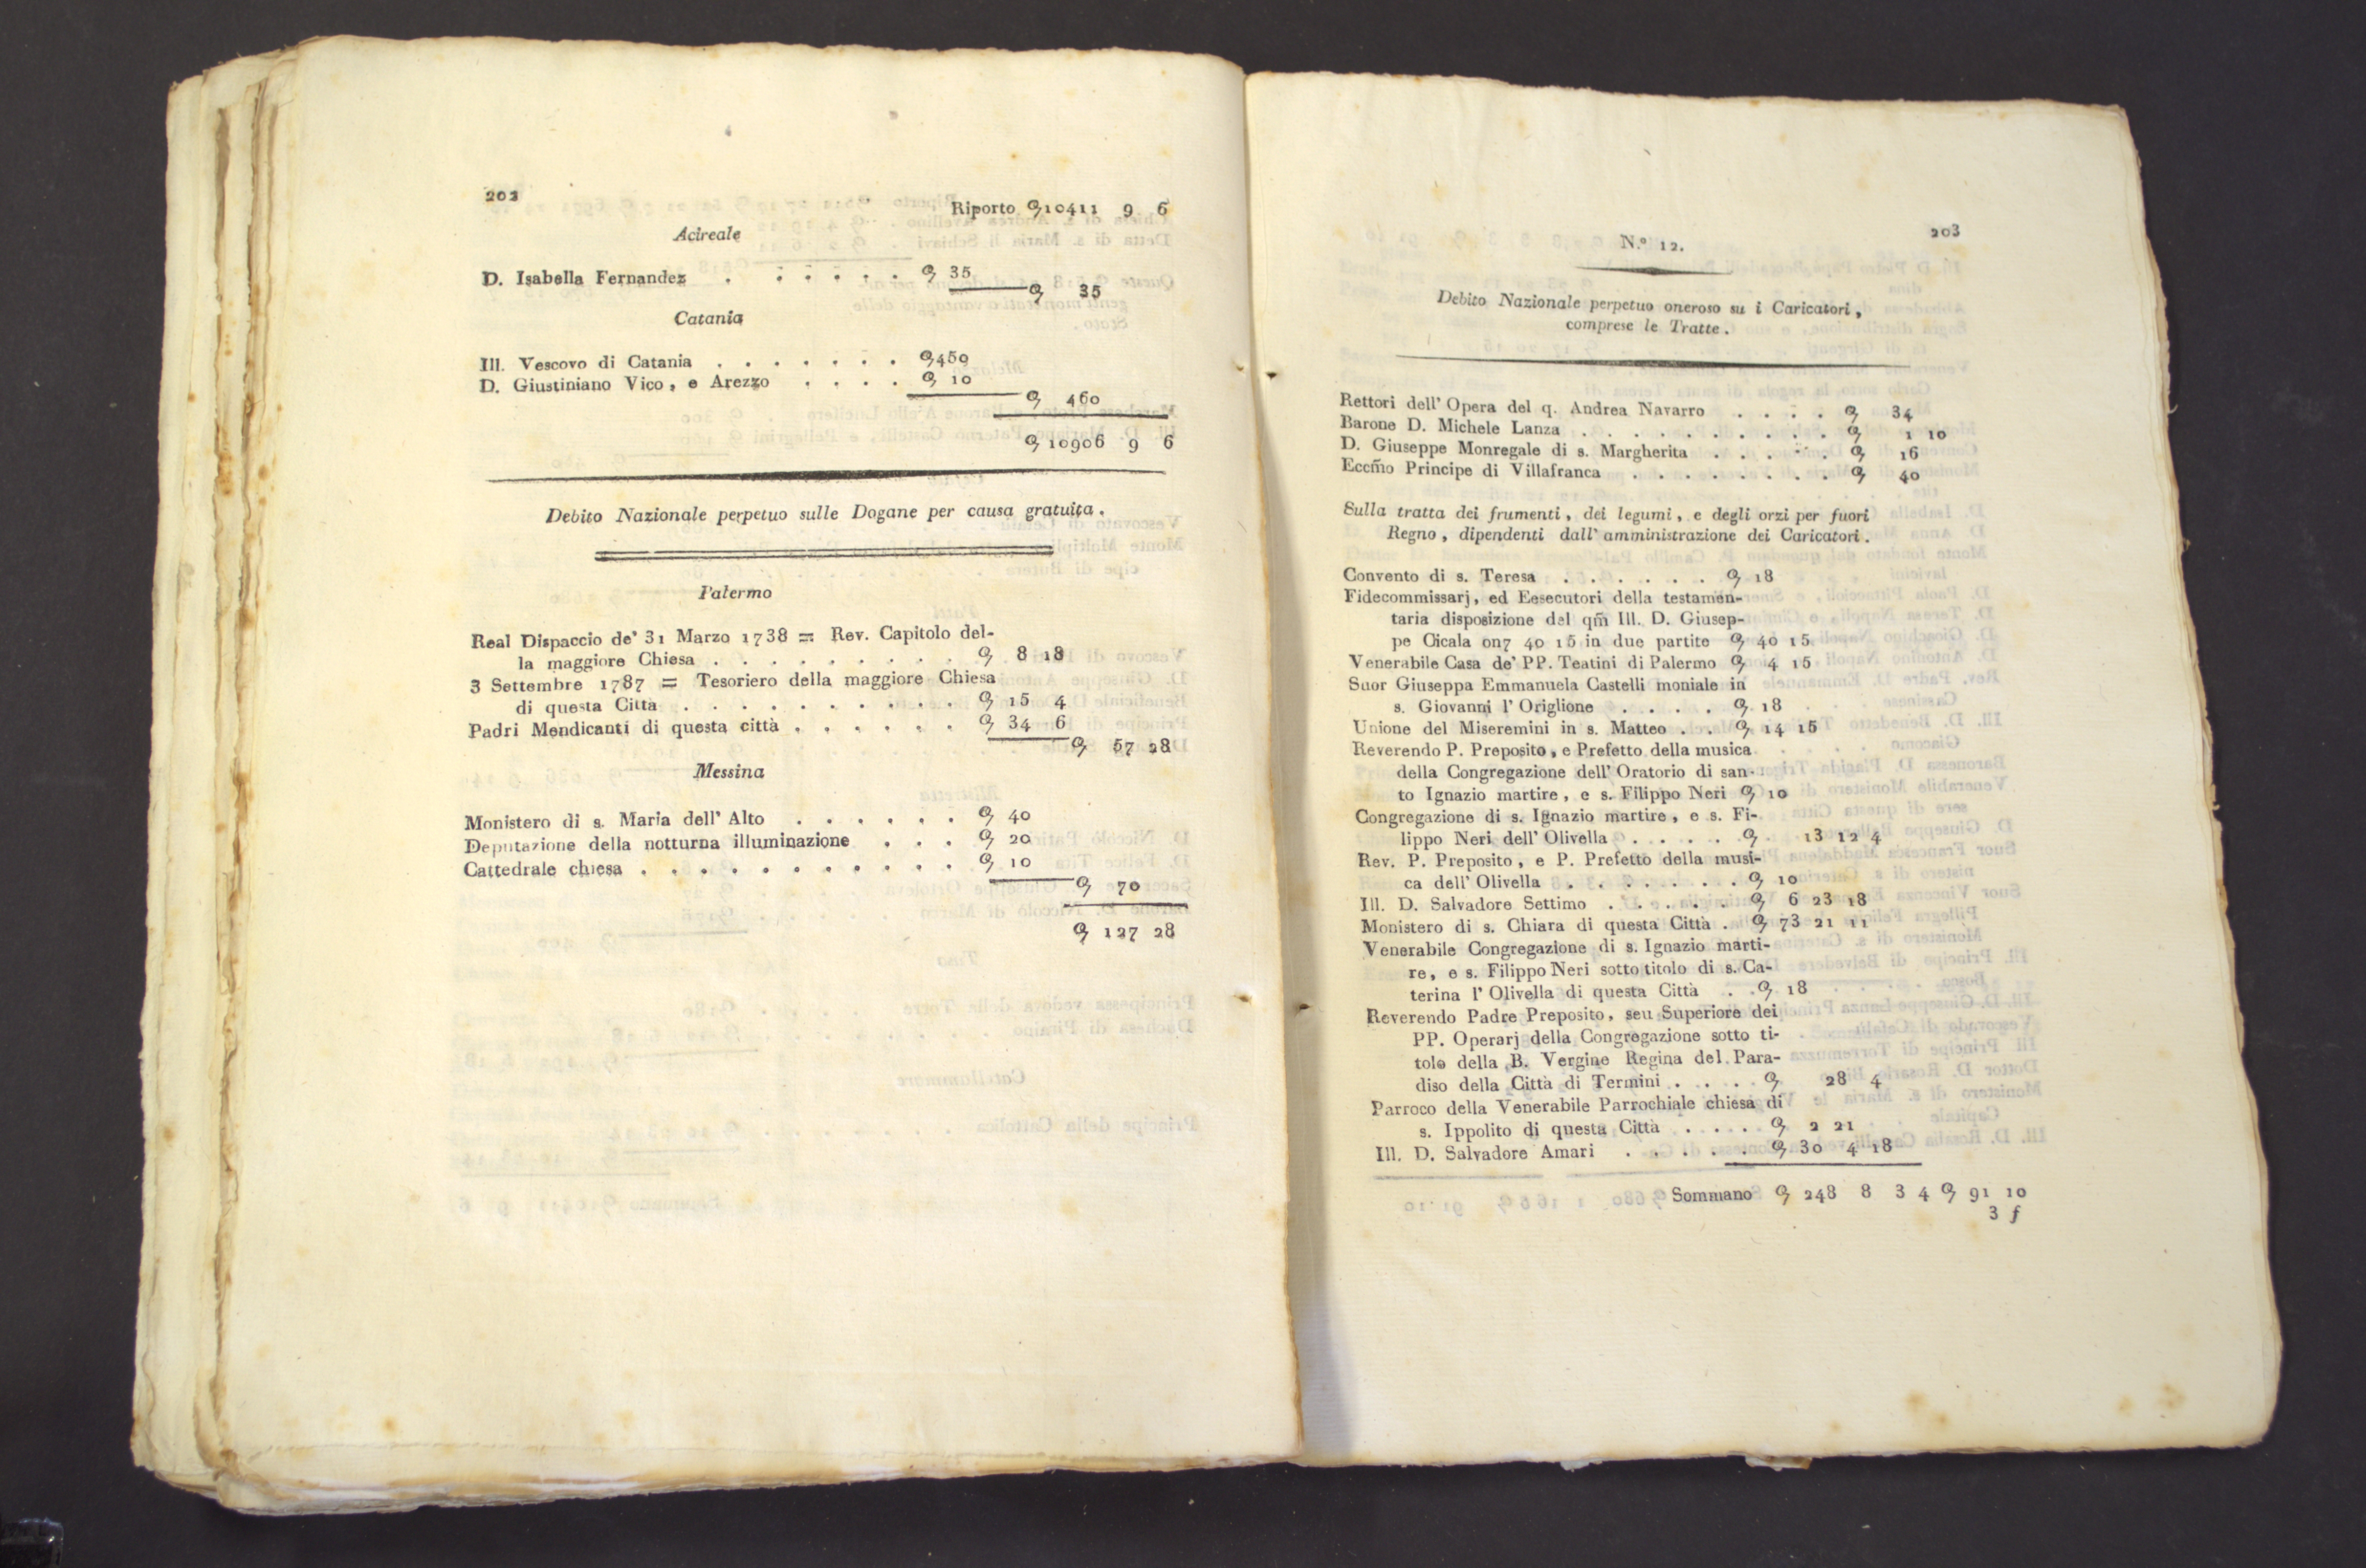 202
Riporto ꝯ 10411 9 6
Acireale
D. Isabella Fernandez . . . . . . ꝯ 35
ꝯ 35
Catania
Ill. Vescovo di Catania . . . . . . . ꝯ 450
D. Giustiniano Vico, e Arezzo . . . . ꝯ 10
ꝯ 460
ꝯ 10906 9 6
Debito Nazionale perpetuo sulle Dogane per causa gratuita.
Palermo
Real Dispaccio de' 31 Marzo 1738 = Rev. Capitolo del-
la maggiore Chiesa . . . . . . . . . ꝯ 8 18
3 Settembre 1787 = Tesoriero della maggiore Chiesa
di questa Città . . . . . . . . . . ꝯ 15 4
Padri Mendicanti di questa città . . . . . . ꝯ 34 6
ꝯ 57 28
Messina
Monistero di s. Maria dell' Alto . . . . . . ꝯ 40
Deputazione della notturna illuminazione . . . ꝯ 20
Cattedrale chiesa . . . . . . . . . . . ꝯ 10
ꝯ 70
ꝯ 127 28
203
N.º 12.
Debito Nazionale perpetuo oneroso su i Caricatori,
comprese le Tratte.
Rettori dell' Opera del q. Andrea Navarro . . . . ꝯ 34
Barone D. Michele Lanza . . . . . . . . . . ꝯ 1 10
D. Giuseppe Monregale di s. Margherita . . . . . ꝯ 16
Eccm̃o Principe di Villafranca . . . . . . . . ꝯ 40
Sulla tratta dei frumenti, dei legumi, e degli orzi per fuori
Regno, dipendenti dall' amministrazione dei Caricatori.
Convento di s. Teresa . . . . . . ꝯ 18
Fidecommissarj, ed Eesecutori della testamen-
taria disposizione del qm̃ Ill. D. Giusep-
pe Cicala on7 40 15 in due partite ꝯ 40 15
Venerabile Casa de' PP. Teatini di Palermo ꝯ 4 15
Suor Giuseppa Emmanuela Castelli moniale in
s. Giovanni l' Origlione . . . . ꝯ 18
Unione del Miseremini in s. Matteo . . ꝯ 14 15
Reverendo P. Preposito, e Prefetto della musica
della Congregazione dell' Oratorio di san-
to Ignazio martire, e s. Filippo Neri ꝯ 10
Congregazione di s. Ignazio martire, e s. Fi-
lippo Neri dell' Olivella . . . . . ꝯ 13 12 4
Rev. P. Preposito, e P. Prefetto della musi-
ca dell' Olivella . . . . . . . ꝯ 10
Ill. D. Salvadore Settimo . . . . . ꝯ 6 23 18
Monistero di s. Chiara di questa Città . ꝯ 73 21 11
Venerabile Congregazione di s. Ignazio marti-
re, e s. Filippo Neri sotto titolo di s. Ca-
terina l' Olivella di questa Città . . ꝯ 18
Reverendo Padre Preposito, seu Superiore dei
PP. Operarj della Congregazione sotto ti-
tolo della B. Vergine Regina del Para-
diso della Città di Termini . . . . ꝯ 28 4
Parroco della Venerabile Parrochiale chiesa di
s. Ippolito di questa Città . . . . ꝯ 2 21
Ill. D. Salvadore Amari . . . . . ꝯ 30 4 18
Sommano ꝯ 248 8 3 4 ꝯ 91 10
3 f